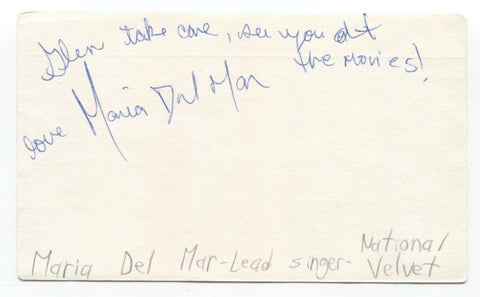 Glen take care, see you at
the movies!
love Maria Del Mar
National
Maria Del Mar-Lead singer- Velvet